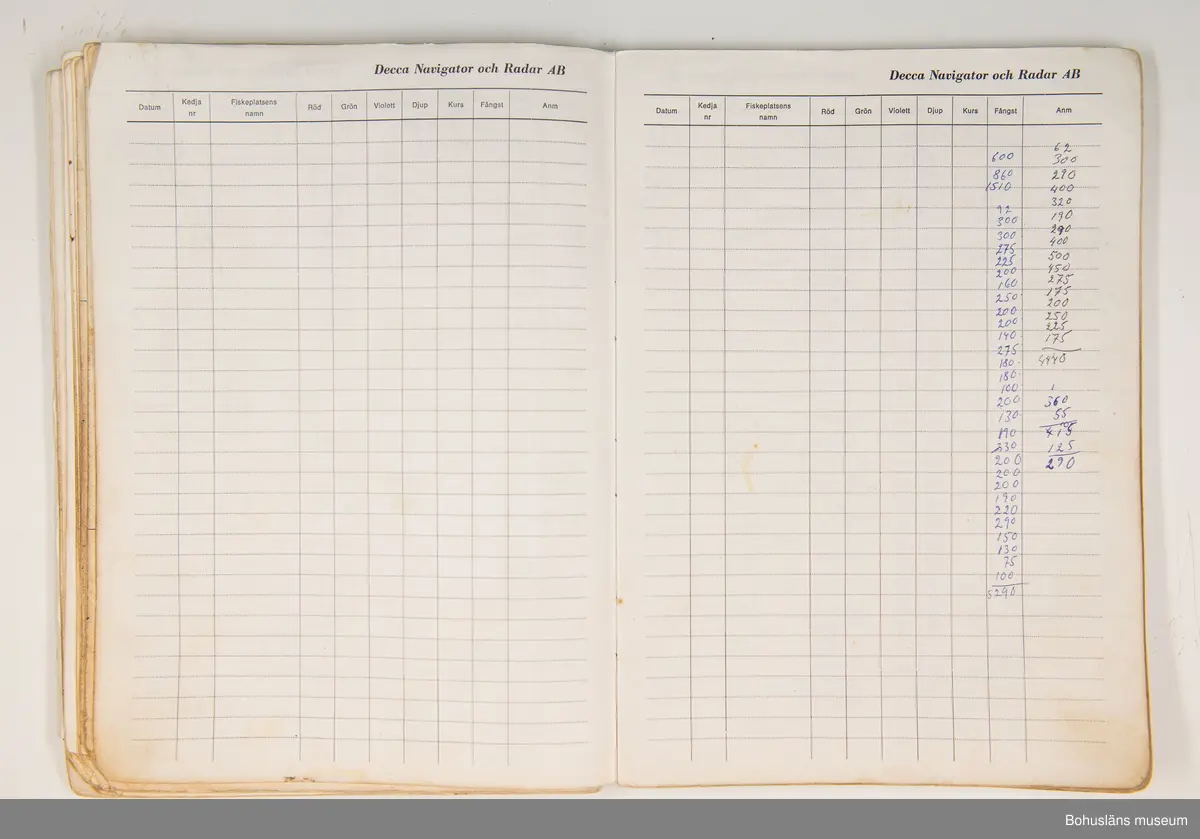 Decca Navigator och Radar AB
Datum Kedja nr Fiskeplatsens namn Röd Grön Violett Djup Kurs Fångst Anm
Decca Navigator och Radar AB
Datum Kedja nr Fiskeplatsens namn Röd Grön Violett Djup Kurs Fångst Anm
600
860
1510
92
300
300
275
225
200
160
250
200
200
140
275
180
180
100
200
130
190
330
200
200
200
190
220
290
150
130
75
100
5290
62
300
290
400
320
190
290
400
500
450
275
175
200
250
225
175
4440
360
55
415
125
290
Bohusläns museum